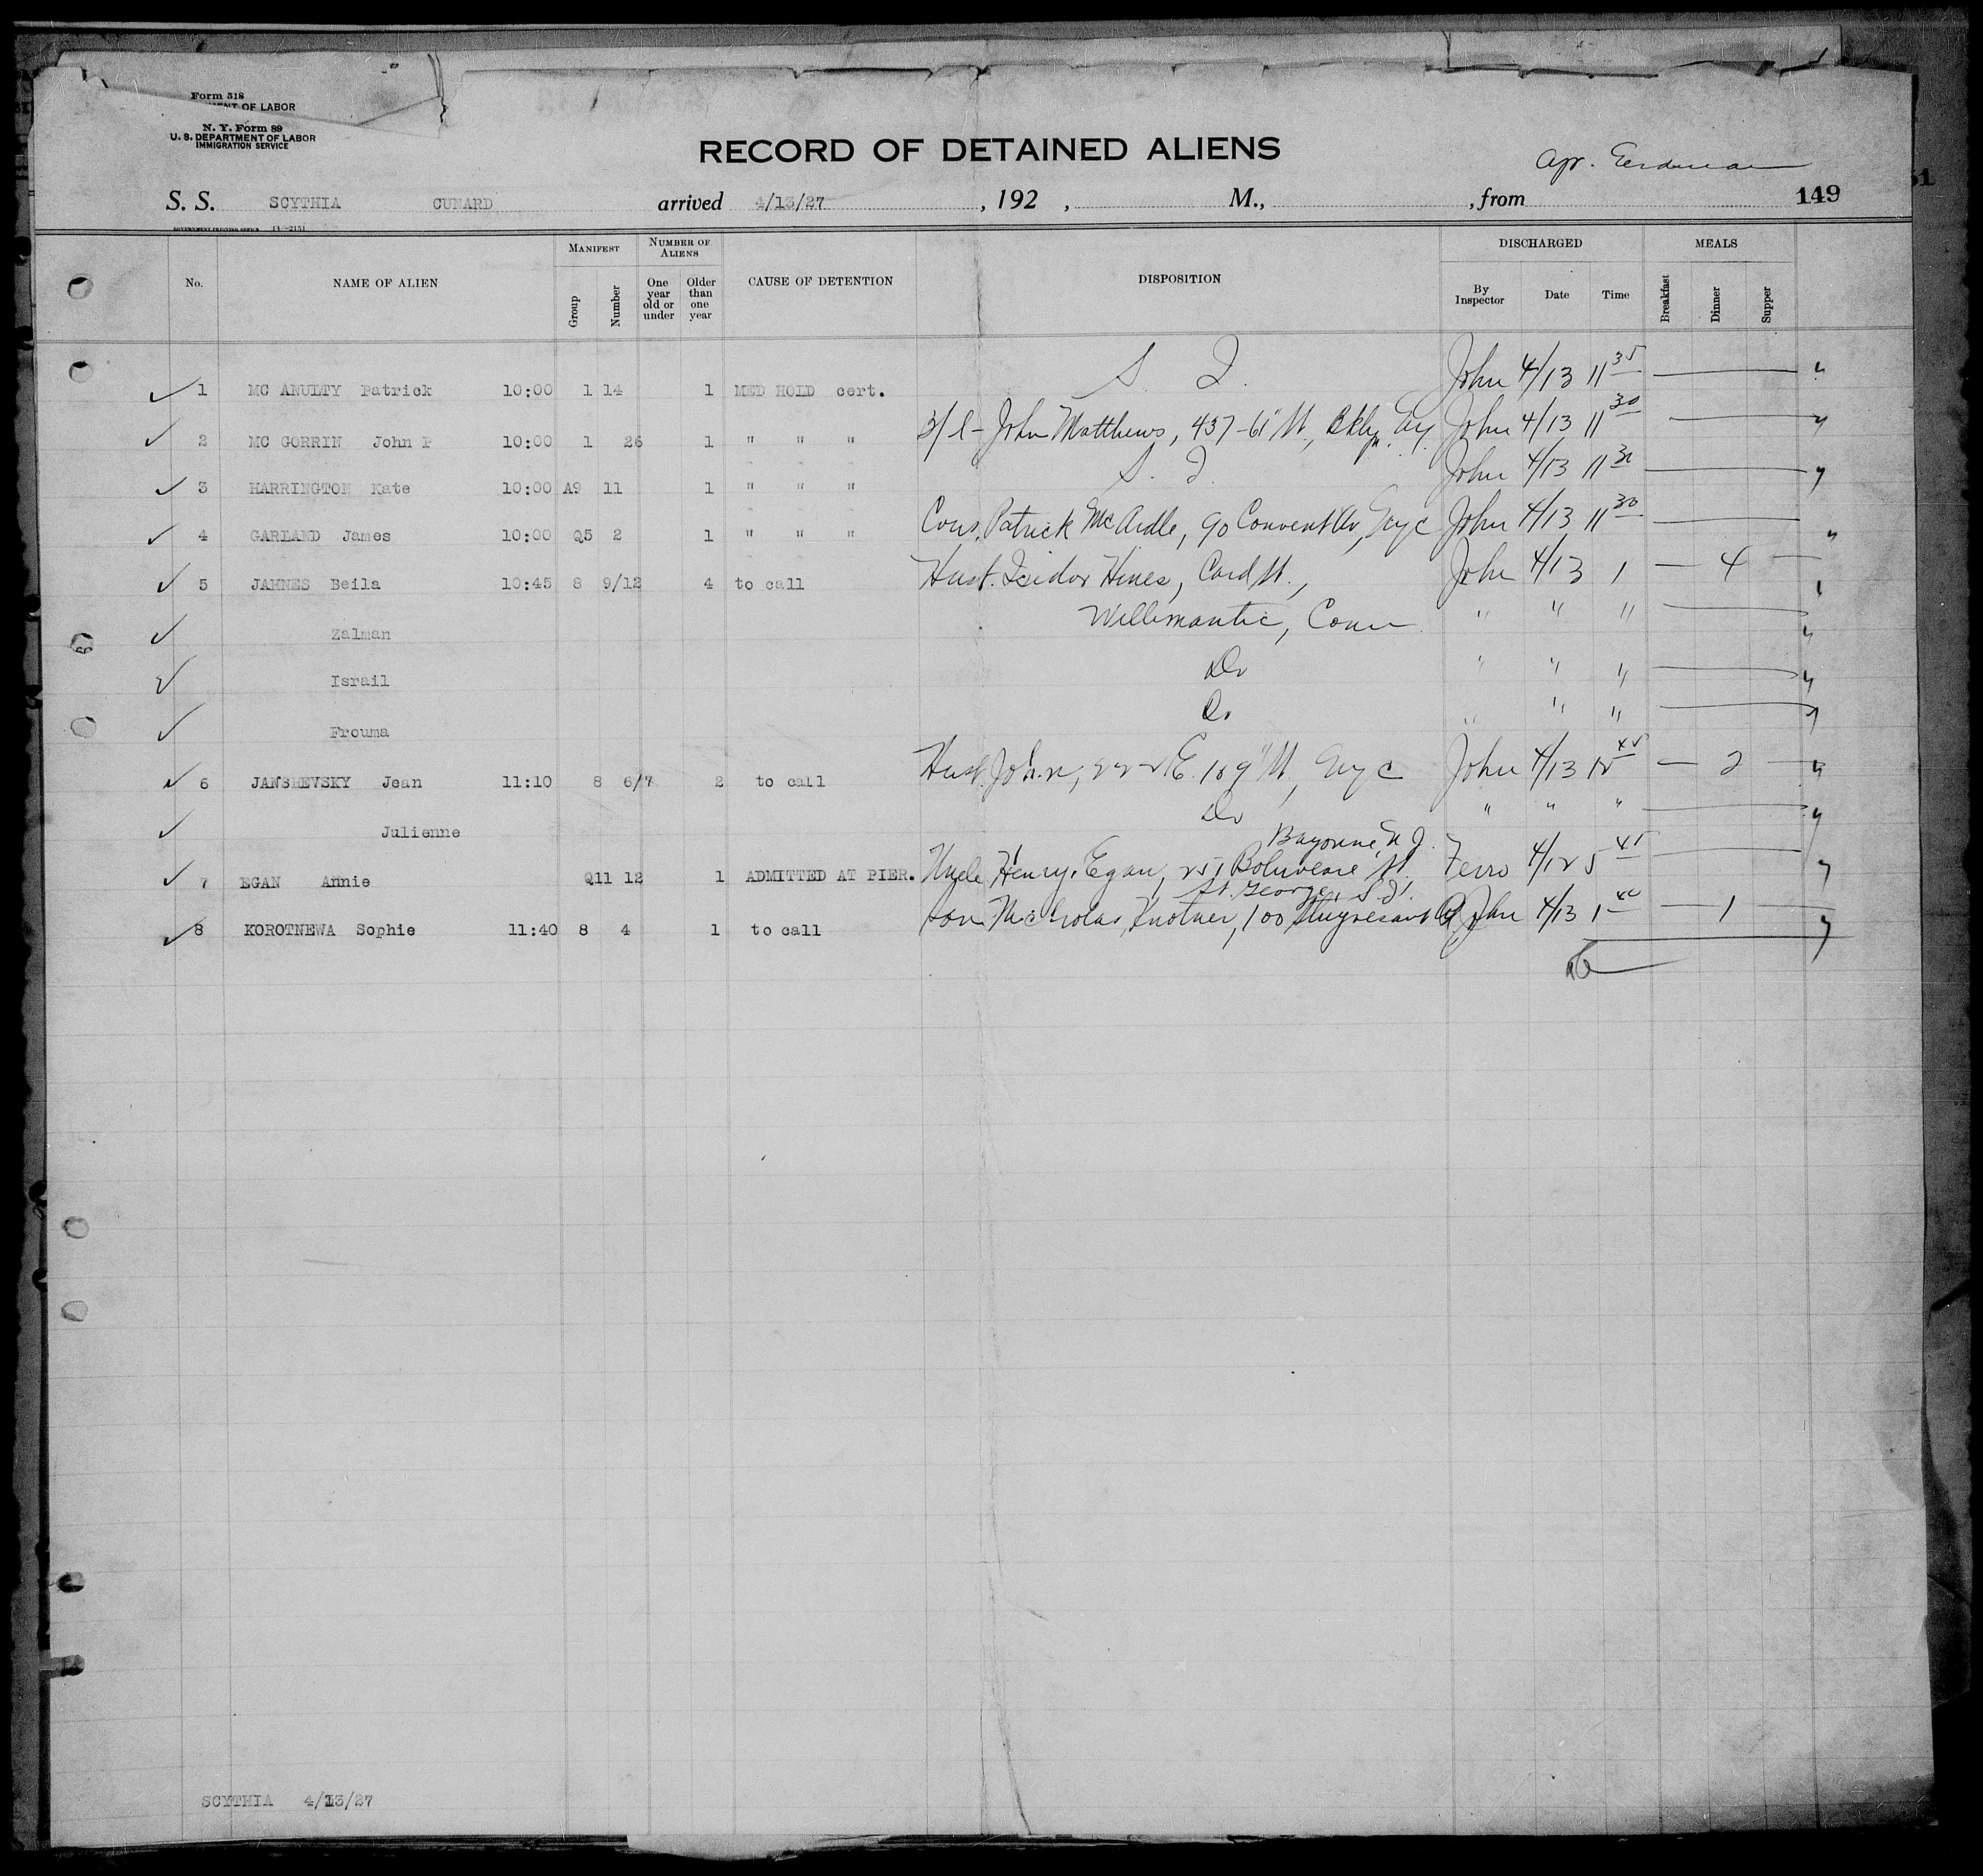 Form 518
OF LABOR
N. Y. Form 89
U. S. DEPARTMENT OF LABOR
IMMIGRATION SERVICE
RECORD OF DETAINED ALIENS
S. S. SCYTHIA CUNARD arrived 4/13/27 , 192 , M., , from 149
GOVERNMENT PRINTING OFFICE
No. NAME OF ALIEN MANIFEST NUMBER OF ALIENS CAUSE OF DETENTION DISPOSITION DISCHARGED MEALS
Group Number One year old or under Older than one year By Inspector Date Time Breakfast Dinner Supper
1 MC ANULTY Patrick 10:00 1 14 1 MED HOLD cert. S. I. John 4/13 11 35
2 MC GORRIN John P 10:00 1 26 1 " " " John Matthews, 437-61" St., Bklyn. Ny John 4/13 11 30
3 HARRINGTON Kate 10:00 A9 11 1 " " " S. I. John 4/13 11 30
4 GARLAND James 10:00 Q5 2 1 " " " Cous. Patrick McArdle, 90 Convent Av, Nyc John 4/13 11 30
5 JAHNES Beila 10:45 8 9/12 4 to call Husb. Isidor Hines, Card St., John 4/13 1 4
Zalman Willimantic, Conn " " "
Israil Do " " "
Frouma Do " " "
6 JANSHEVSKY Jean 11:10 8 6/7 2 to call Husb. John, 222 E. 109" St, Nyc John 4/13 12 45 2
Julienne Do " " "
Bayonne, N J.
7 EGAN Annie Q11 12 1 ADMITTED AT PIER. Uncle Henry Egan, 251 St. Ferro 4/12 5 45
St. George, S I.
8 KOROTNEWA Sophie 11:40 8 4 1 to call Son Nicholas 100 Stuyvesant John 4/13 1 40 1
SCYTHIA 4/13/27